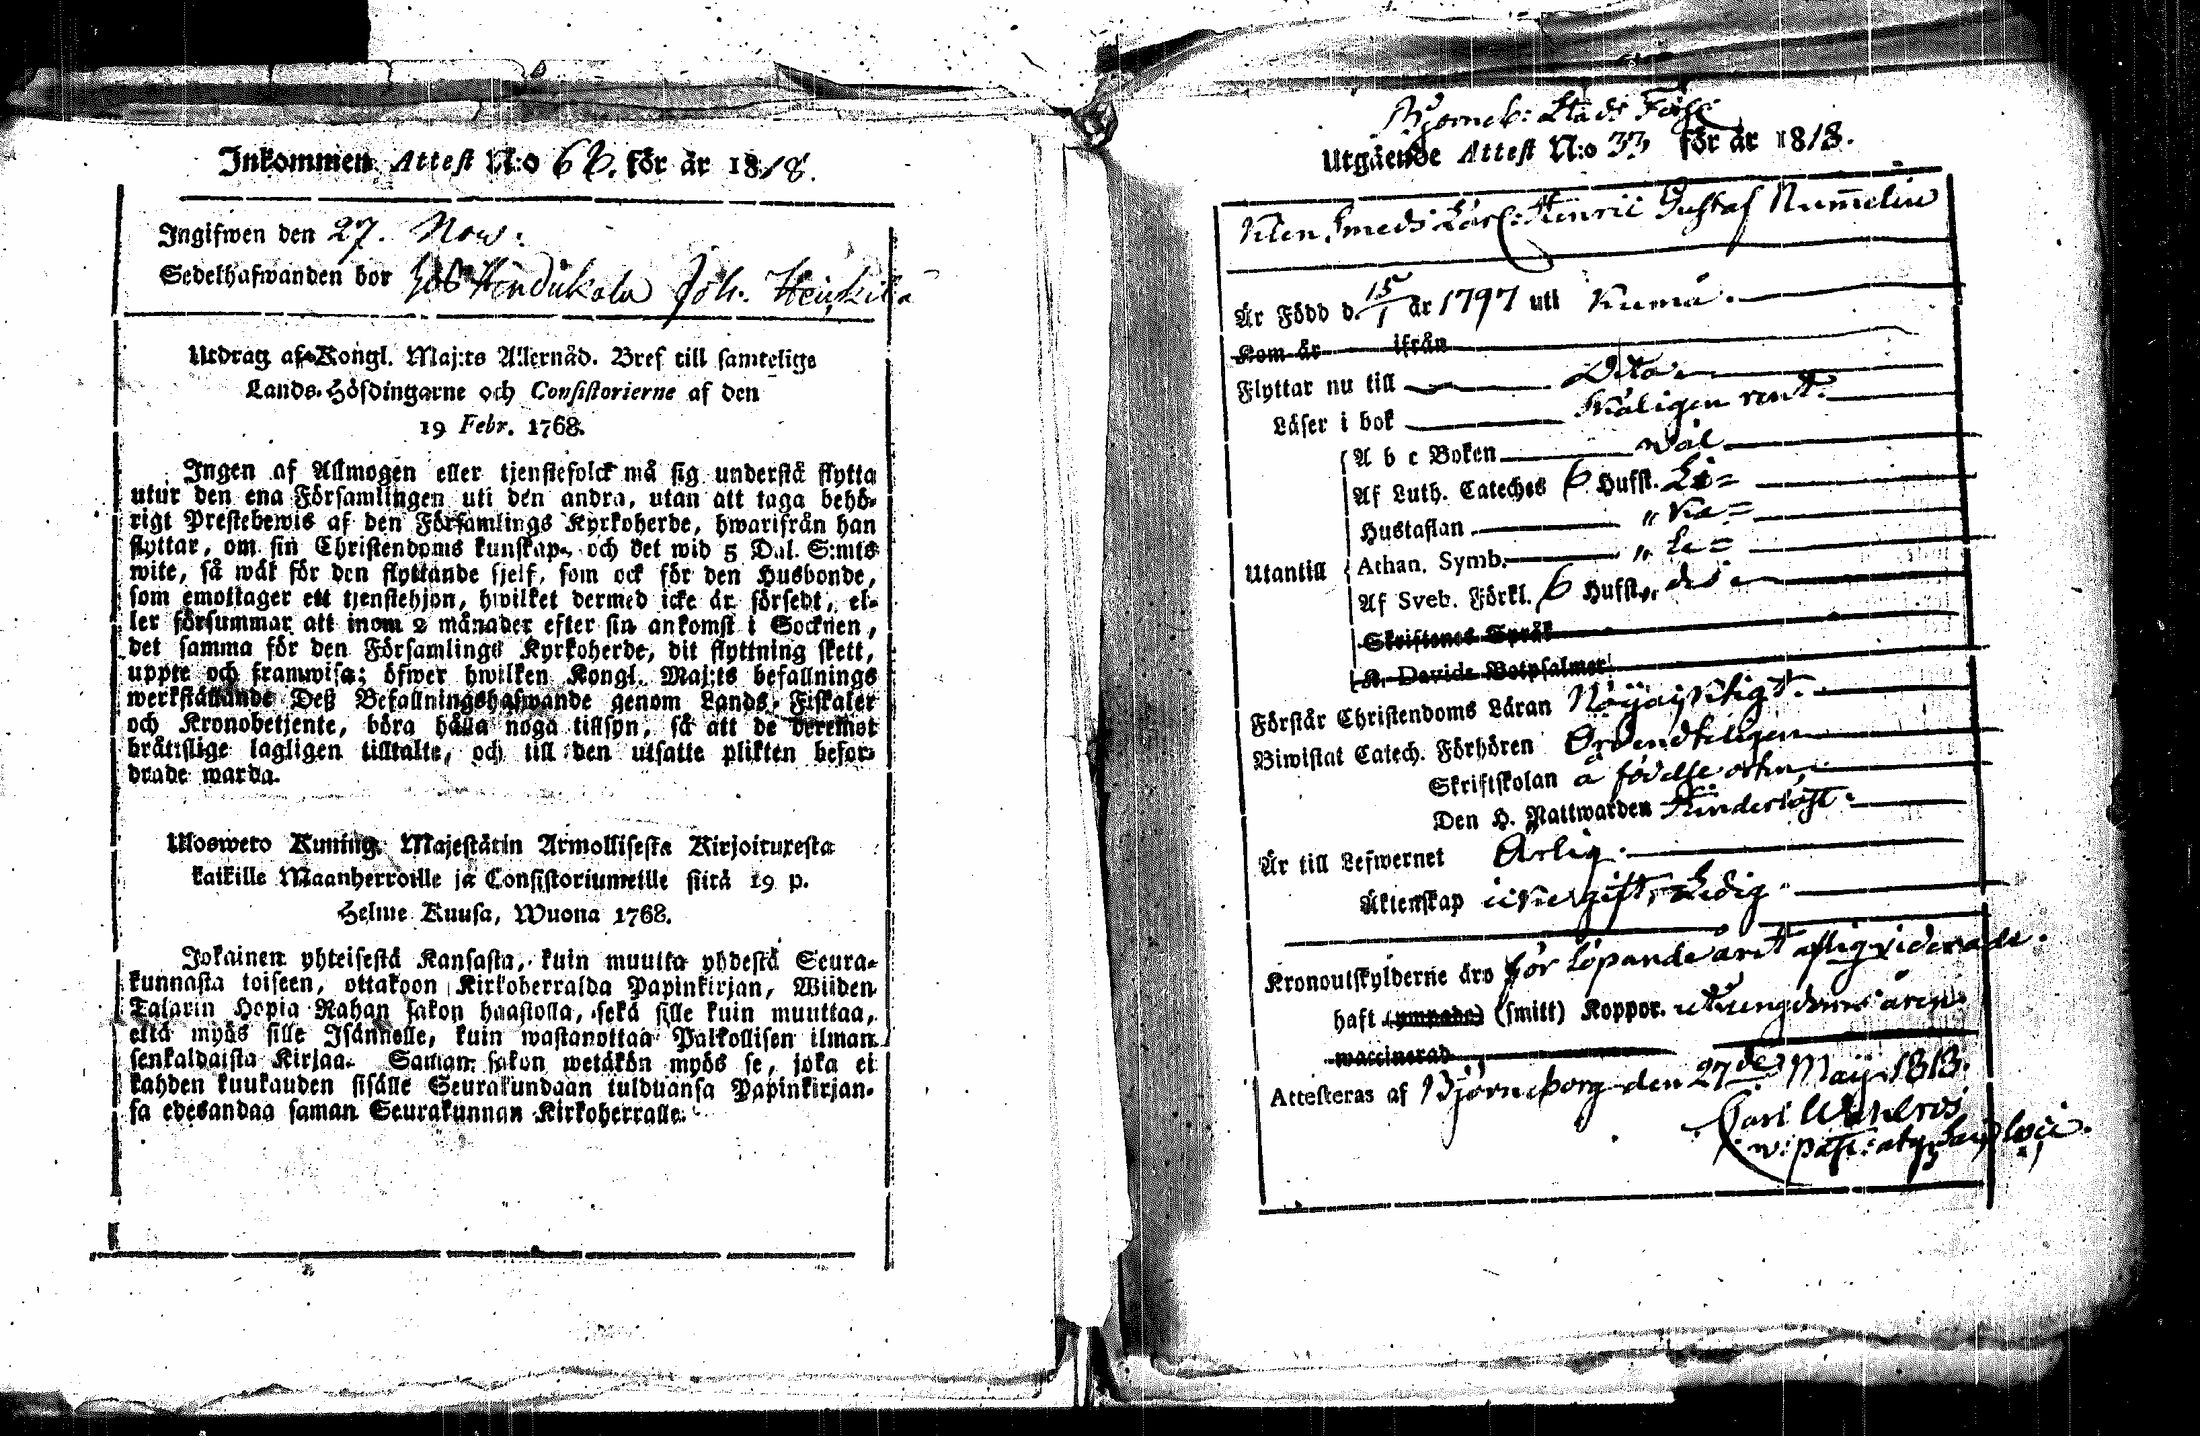 Inkommen Attest N:o 66. för år 1818.
Ingifwen den 27. Now:
Sedelhafwanden bor hos Joh. Heickilä
Utdrag af Kongl. Maj:ts Allernåd. Bref till samtelige
Lands-Höfdingarne och Consistorierne af den
19 Febr. 1768.
Ingen af Allmogen eller tjenstefolck må sig understå flytta
utur den ena Församlingen uti den andra, utan att taga behö-
rigt Prestebewis af den Församlings Kyrkoherde, hwarifrån han
flyttar, om sin Christendoms kunskap, och det wid 5 Dal. S:mts
wite, så wäl för den flyttande sjelf, som ock för den Husbonde,
som emottager ett tjenstehjon, hwilket dermed icke är försedt, el-
ler försummar att inom 2 månader efter sin ankomst i Socknen,
det samma för den Församlings Kyrkoherde, dit flyttning skett,
uppte och framwisa; öfwer hwilken Kongl. Maj:ts befallnings
werkställande Deß Befallningshafwande genom Lands-Fiskaler
och Kronobetjente, böra hålla noga tillsyn, så att de deremot
brättslige lagligen tilltalte, och till den utsatte plikten befor-
drade warda.
Ulosweto Kuning. Majestätin Armollisesta Kirjoituxesta
kaikille Maanherroille ja Consistoriumeille siitä 19 p.
Helme Kuusa, Wuona 1768.
Jokainen yhteisestä Kansasta, kuin muutta yhdestä Seura-
kunnasta toiseen, ottakoon Kirkoherralda Papinkirjan, Wiiden
Talarin Hopia Rahan sakon haastolla, sekä sille kuin muuttaa,
että myös sille Isännelle, kuin wastanottaa Palkollisen ilman
senkaldaista Kirjaa. Saman sakon wetäkön myös se, joka ei
kahden kuukauden sisälle Seurakundaan tulduansa Papinkirjan-
sa edesandaa saman Seurakunnan Kirkoherralle.
Björneb: Stads Förs:
Utgående Attest N:o 33 för år 1818.
Klen Smeds Lärl: Henric Gustaf Num̄elin
Är Född d. 15/1 år 1797 uti Kumå.
Kom år ifrån
Flyttar nu till Dito
Läser i bok Skäligen rent.
A b c Boken wäl
Af Luth. Cateches 6 Hufst. Lö=
Hustaflan " Ka=
Utantill Athan. Symb. " Le=
Af Sveb. Förkl. 6 Hufst. des
Skriftenes Språk
K. Davids Botpsalmer
Förstår Christendoms Läran Nöjaktigt.
Biwistat Catech. Förhören Ordendteligen
Skriftskolan å födelse orten,
Den H. Nattwarden Hinderlöst.
Är till Lefwernet Ärlig.
Äktenskap icke gift, Ledig
Kronoutskylderne äro för löpande året afligviderade.
haft (ympade) (smitt) Koppor. i Ungdoms åren.
waccinerad
Attesteras af Björneborg den 27de Maij 1818.
Carl Wahlroos